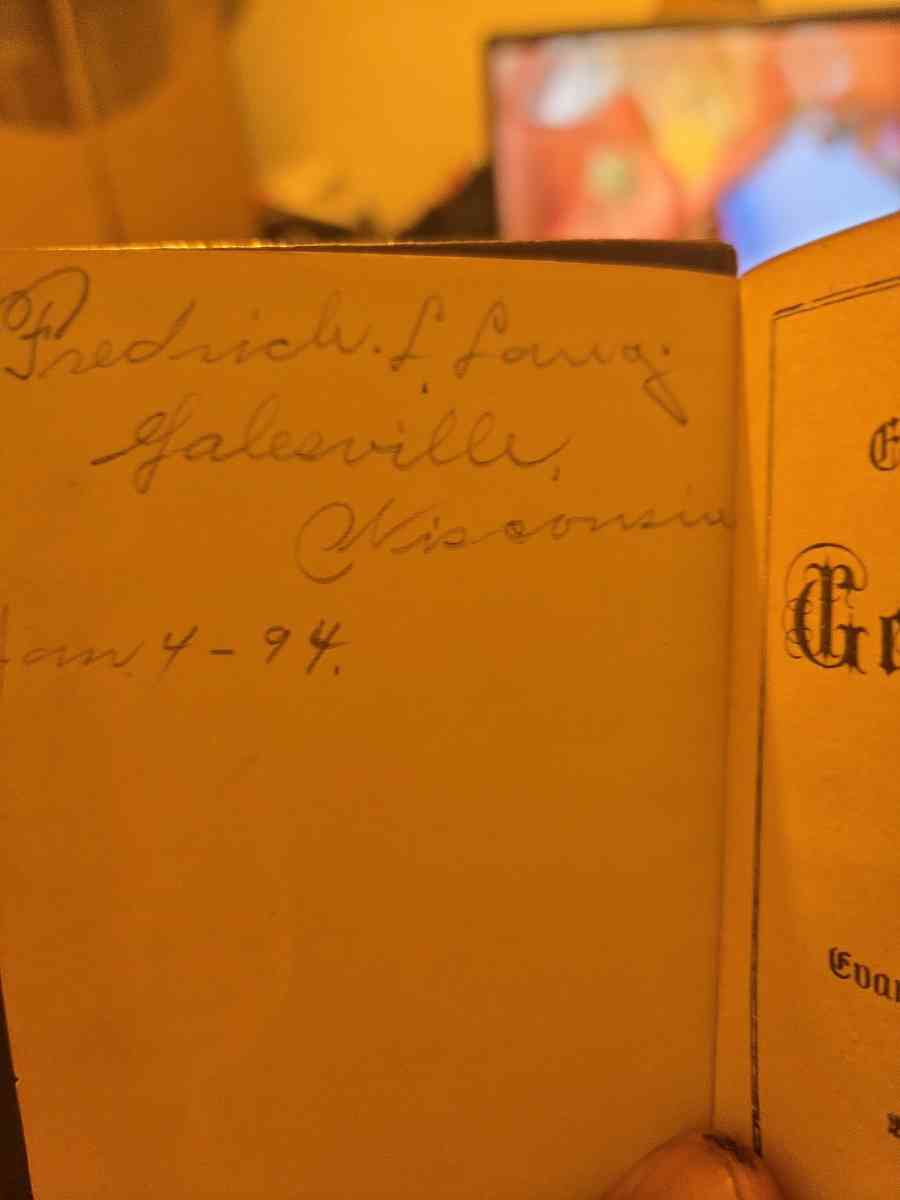 Fredrich. L Lang.
Galesville,
Wisconsin
Jan. 4 - 94.
Ge
Evan